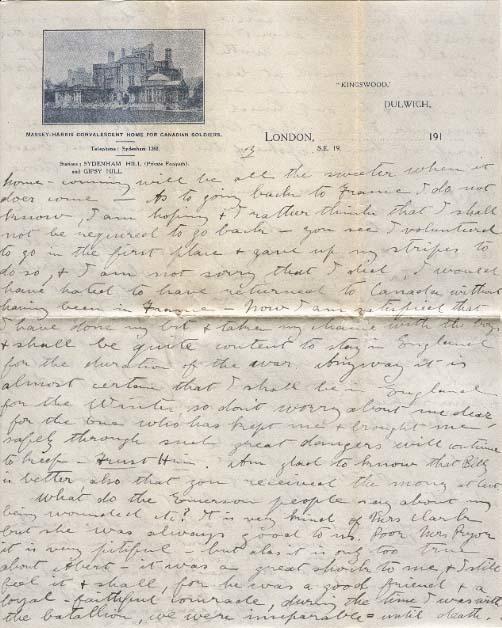 "KINGSWOOD,"
DULWICH,
MASSEY-HARRIS CONVALESCENT HOME FOR CANADIAN SOLDIERS.
LONDON, 191
S.E. 19.
Telephone: Sydenham
Stations: SYDENHAM HILL
and GIPSY HILL
home-coming will be all the sweeter when it
does come — As to going back to France I do not
know I am hoping & I rather think that I shall
not be required to go back — you see I volunteered
to go in the first place & gave up my stripes to
do so, & I am not sorry that I did, I would
have hated to have returned to Canada without
having been in France — Now I am satisfied that
I have done my bit & taken my chance with the boys
& shall be quite content to stay in England
for the duration of the war. Anyway it is
almost certain that I shall be in England
for the Winter so don't worry about me dear
for the One who has kept me & brought me
safely through such great dangers will continue
to keep — trust Him. Am glad to know that Bill
is better also that you received the money at last
What do the Emerson people say about my
being wounded etc? It is very kind of Mrs Clark
but she was always good to us. Poor Mrs Pryor
it is very pitiful — but alas it is only too true
about Albert — it was a great shock to me, & I still
feel it & shall, for he was a good friend & a
loyal - faithful comrade, during the time I was with
the batallion, we were inseparable = until death.